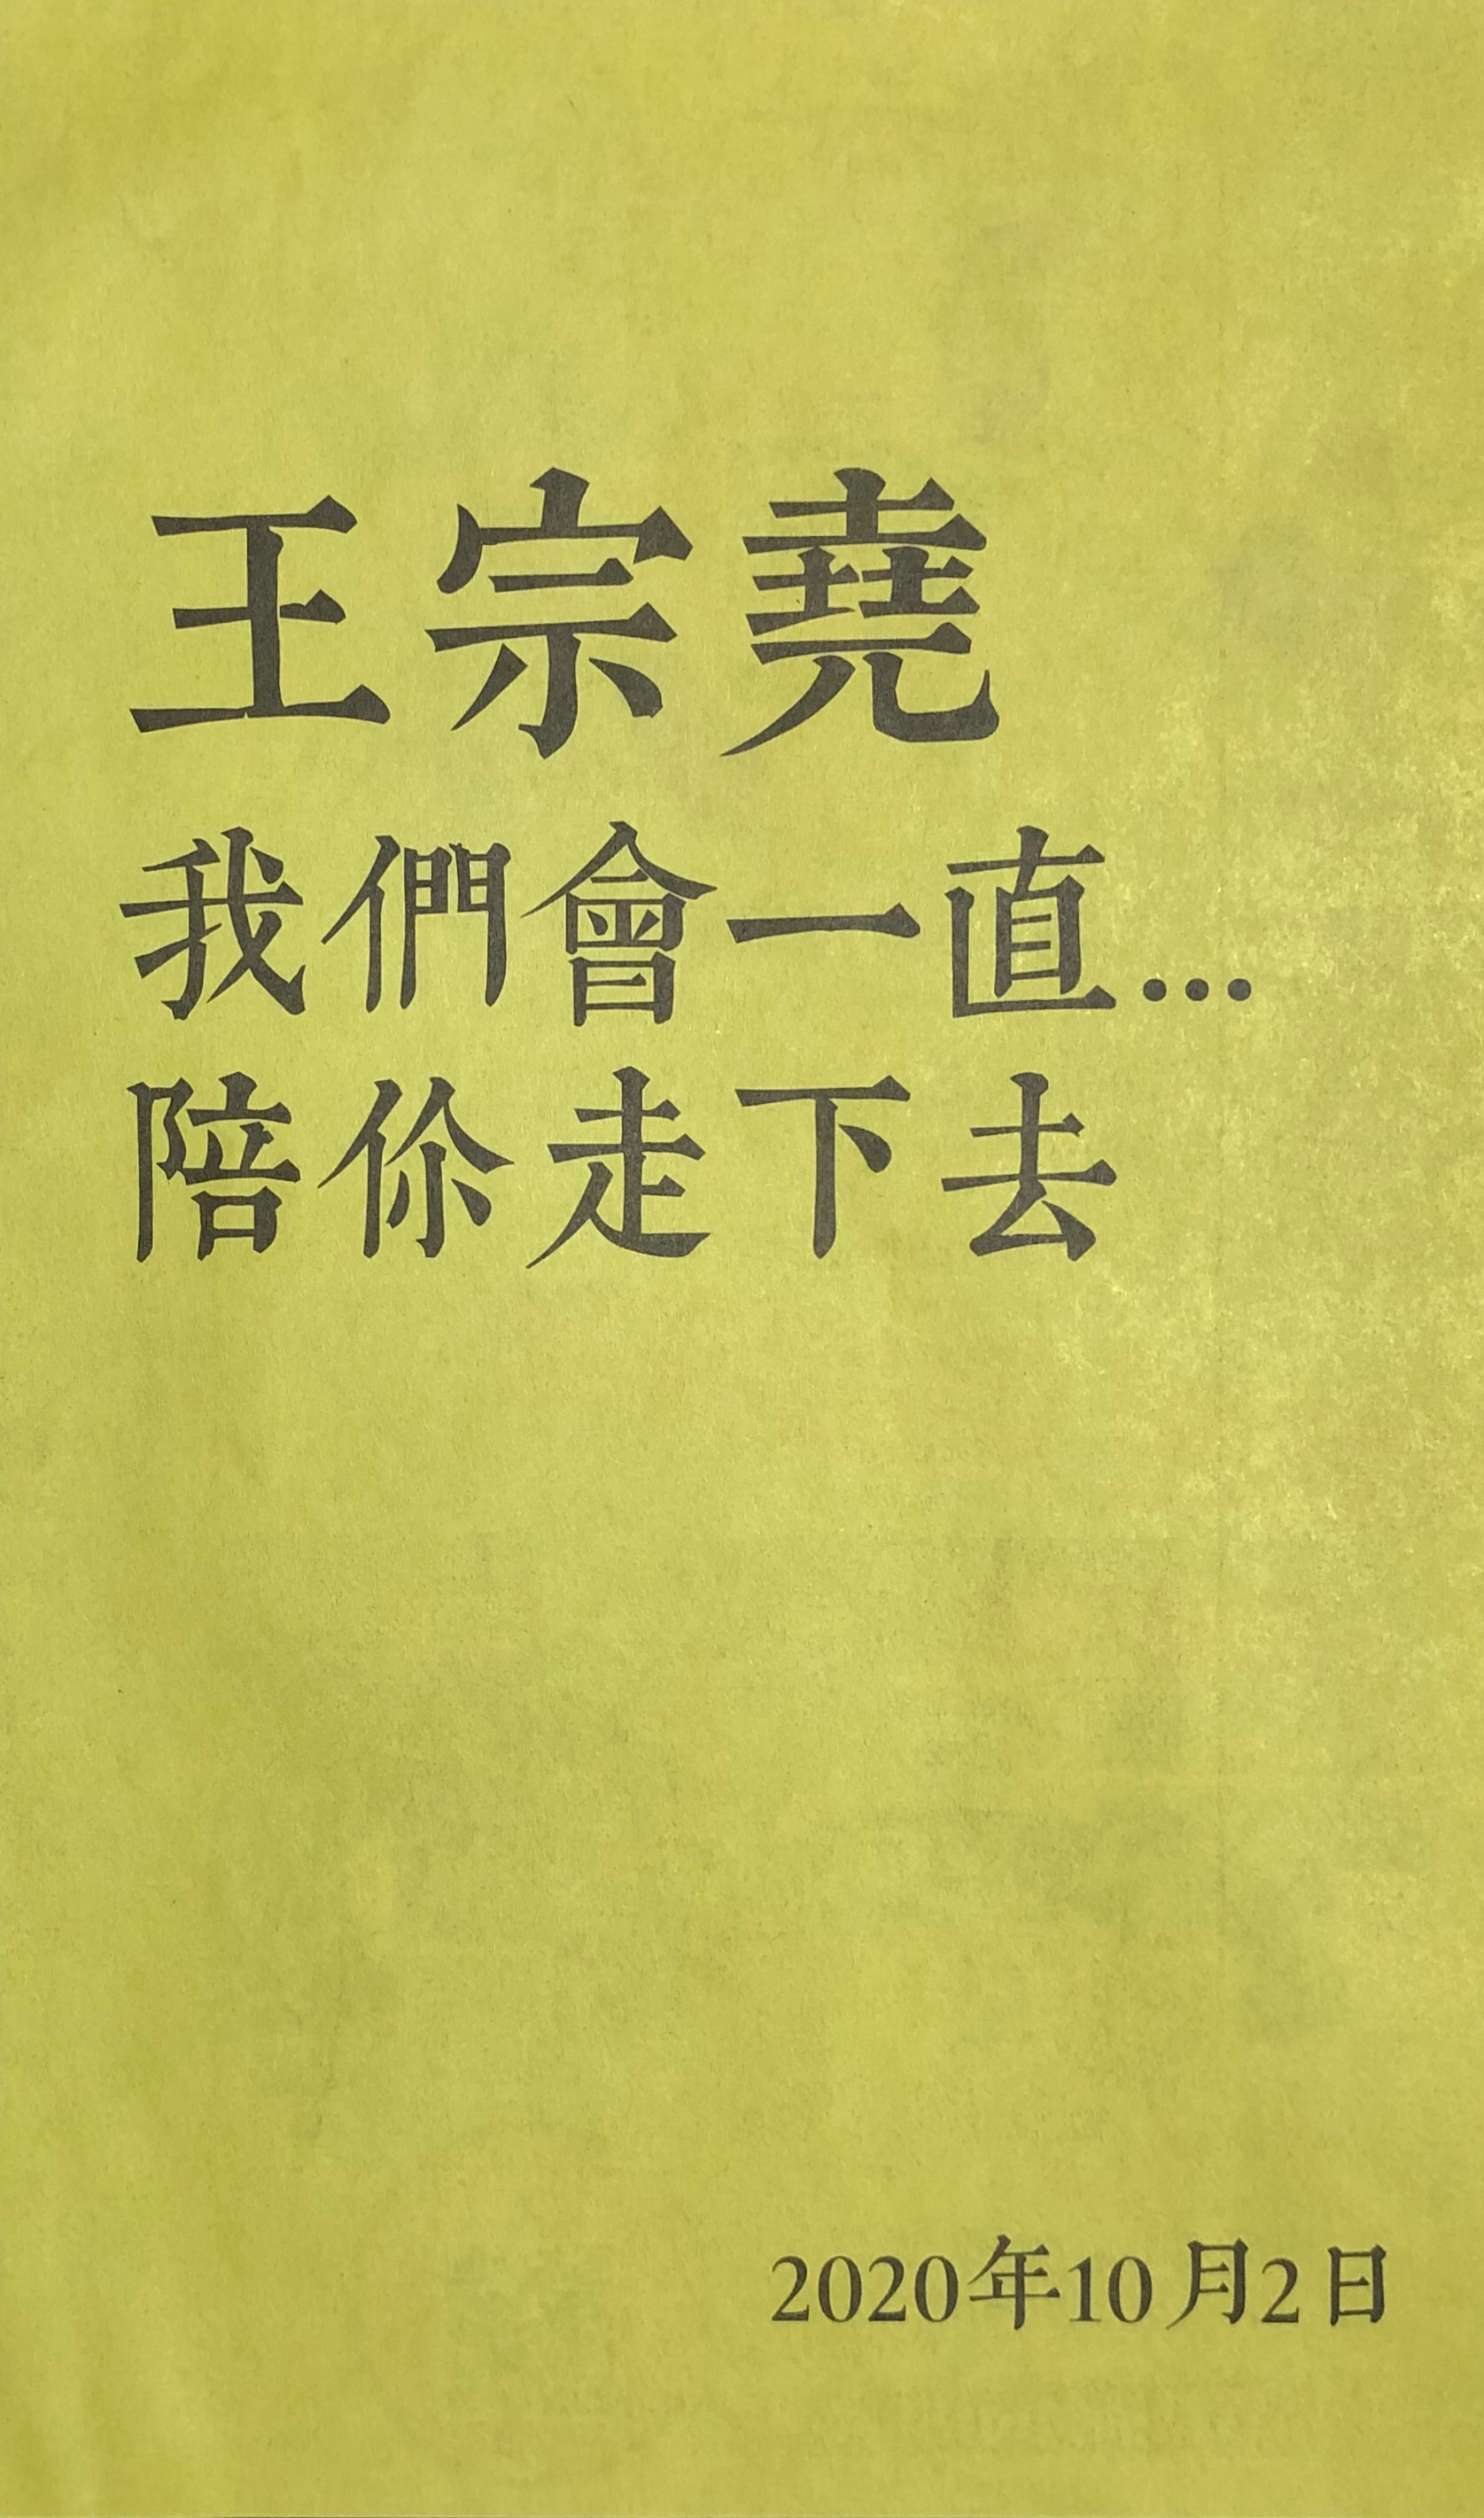 王宗堯
我們會一直...
陪伱走下去
2020年10月2日